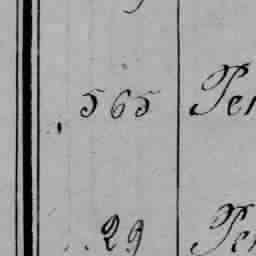 565 Per
29 Per